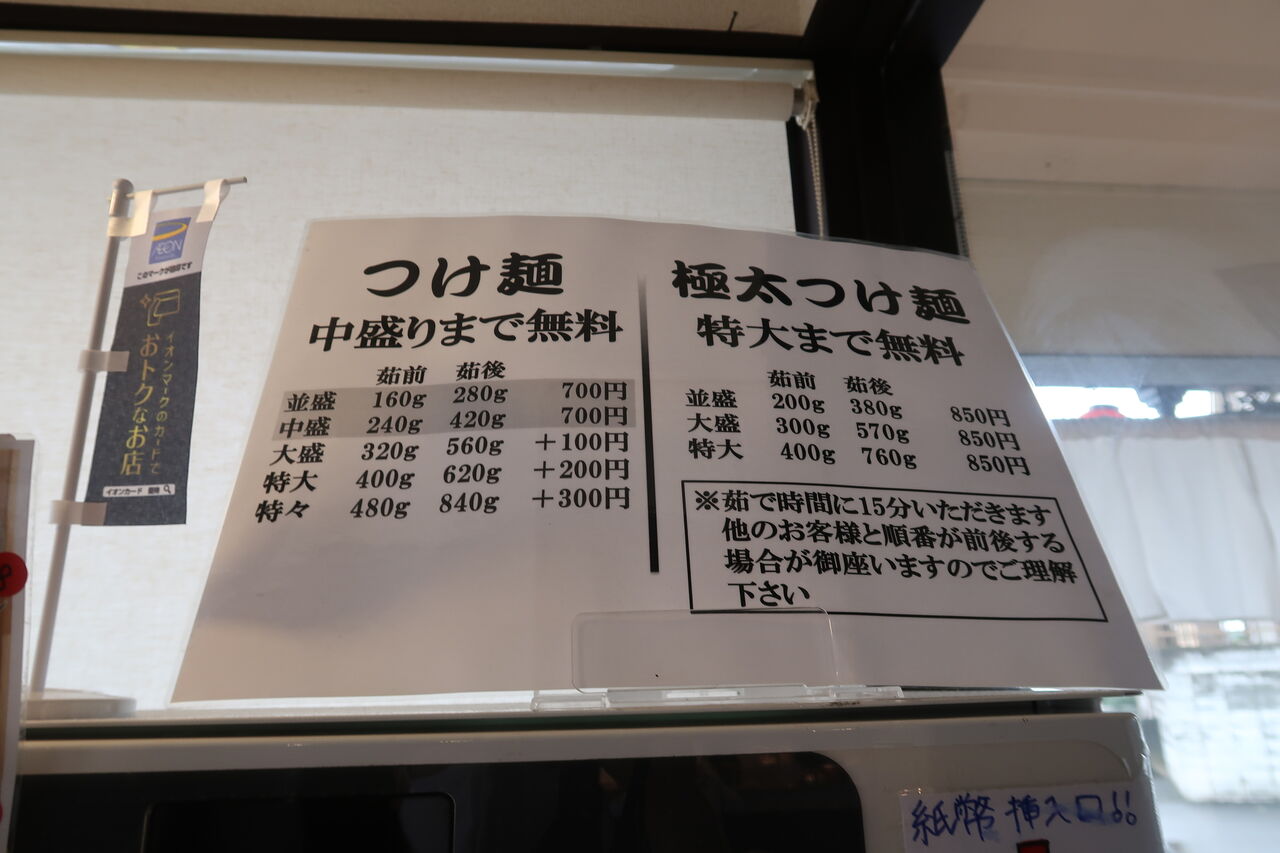 AEON
このマークが目印です
イオンマークのカードで
おトクなお店
イオンカード 優待
つけ麺
中盛りまで無料
茹前 茹後
並盛 160g 280g 700円
中盛 240g 420g 700円
大盛 320g 560g +100円
特大 400g 620g +200円
特々 480g 840g +300円
極太つけ麺
特大まで無料
茹前 茹後
並盛 200g 380g 850円
大盛 300g 570g 850円
特大 400g 760g 850円
※茹で時間に15分いただきます
他のお客様と順番が前後する
場合が御座いますのでご理解
下さい
紙幣挿入口!!